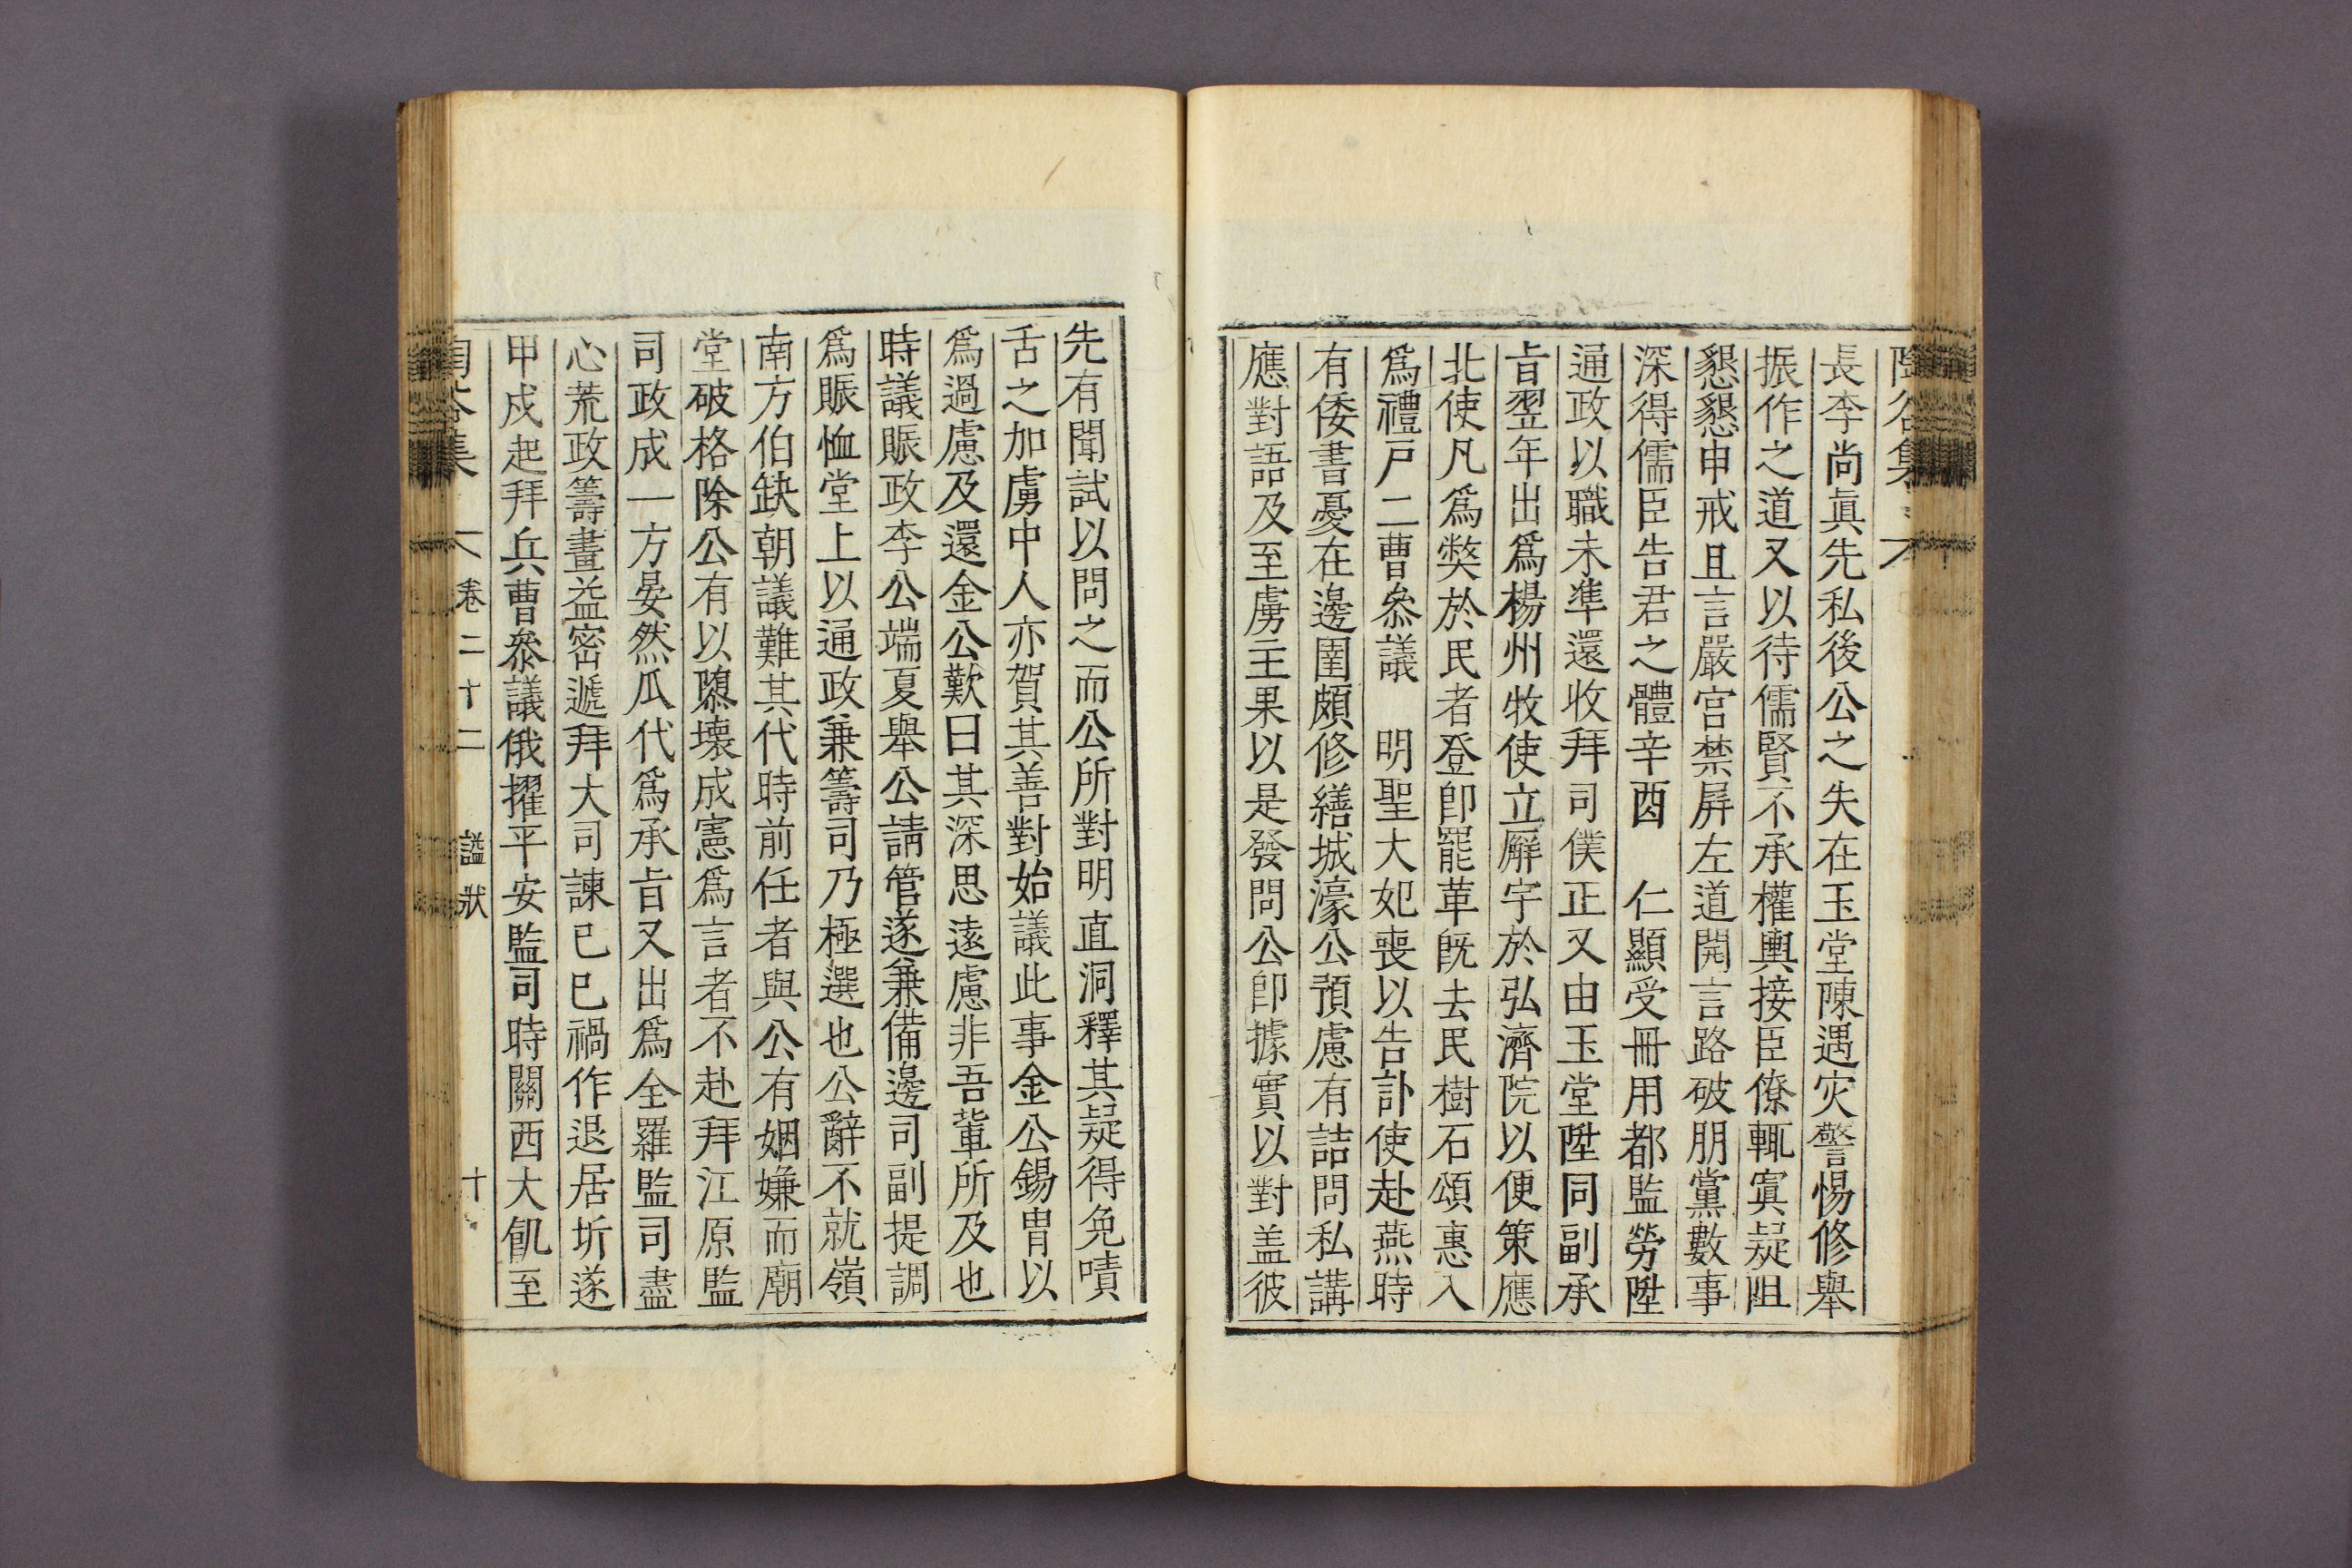 長李尚眞先私後公之失在玉堂陳遇灾警惕修舉
振作之道又以待儒賢不承權輿接臣僚輒寘疑阻
懇懇申戒且言嚴宮禁屛左道開言路破朋黨數事
深得儒臣告君之體辛酉 仁顯受冊用都監勞陞
通政以職未準還收拜司僕正又由玉堂陞同副承
旨翌年出爲楊州牧使立廨宇於弘濟院以便策應
北使凡爲獘於民者登卽罷革旣去民樹石頌惠入
爲禮戶二曹叅議 明聖大妃喪以告訃使赴燕時
有倭書憂在邊圉頗修繕城濠公預慮有詰問私講
應對語及至虜主果以是發問公卽據實以對盖彼
先有聞試以問之而公所對明直洞釋其疑得免嘖
舌之加虜中人亦賀其善對始議此事金公錫胄以
爲過慮及還金公歎曰其深思遠慮非吾輩所及也
時議賑政李公端夏舉公請管遂兼備邊司副提調
爲賑恤堂上以通政兼籌司乃極選也公辭不就嶺
南方伯缺朝議難其代時前任者與公有姻嫌而廟
堂破格除公有以隳壞成憲爲言者不赴拜江原監
司政成一方晏然瓜代爲承旨又出爲全羅監司盡
心荒政籌畫益密遞拜大司諫己巳禍作退居圻遂
甲戌起拜兵曹叅議俄擢平安監司時關西大飢至
卷二十二 諡狀 十